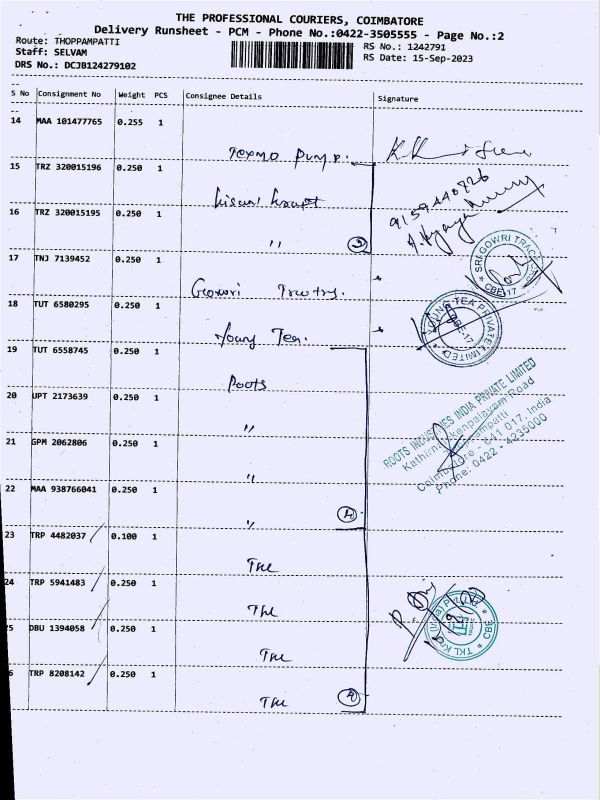 THE PROFESSIONAL COURIERS, COIMBATORE
Delivery Runsheet - PCM - Phone No.:0422-3505555 - Page No.:2
Route: THOPPAMPATTI
RS No.: 1242791
Staff: SELVAM
RS Date: 15-Sep-2023
DRS No.: DCJB124279102
S No Consignment No Weight PCS Consignee Details Signature
14 MAA 101477765 0.255 1
Texmo Pump.
15 TRZ 320015196 0.250 1
9159440826
16 TRZ 320015195 0.250 1
" 2
17 TNJ 7139452 0.250 1
SRI GOWRI TRAC
CBE-17
Gowri
18 TUT 6580295 0.250 1
YOUNG TEA PRIVATE LIMITED
CBE-17
Young Tea.
19 TUT 6558745 0.250 1
Roots
ROOTS INDUSTRIES INDIA PRIVATE LIMITED
20 UPT 2173639 0.250 1
"
Road
Coimbatore - 641 017, India
Phone: 0422 - 4235000
21 GPM 2062806 0.250 1
"
22 MAA 938766041 0.250 1
" 4
23 TRP 4482037 0.100 1
24 TRP 5941483 0.250 1
TKL
CBE
5 DBU 1394058 0.250 1
6 TRP 8208142 0.250 1
4